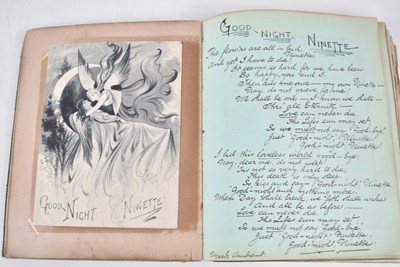 GOOD NIGHT NINETTE
GOOD NIGHT, NINETTE
The flowers are all in bud, Ninette,
And yet I have to die!
It seems so hard for we have been
So happy, you and I.
Then kiss me once — my own Ninette —
Nay, do not grieve for me.
We shall be one — I know we shall —
Thro' all Eternity.
Love can never die,
Tho' Life's sun may set
So we must not say "Good-bye,"
Just "Good-night" Ninette
Good-night Ninette!
I bid this loveless world good-bye,
Nay, dear one, do not wail!
'Tis not so very hard to die,
This death is only sleep.
So kiss and say "Good-night" Ninette
"Good-night" and nothing more.
When Day shall break we both shall wake
And all be as before.
Love can never die,
Tho' Life's sun may set
So we must not say Good-bye
Just "Good-night," Ninette.
Good-night, Ninette.